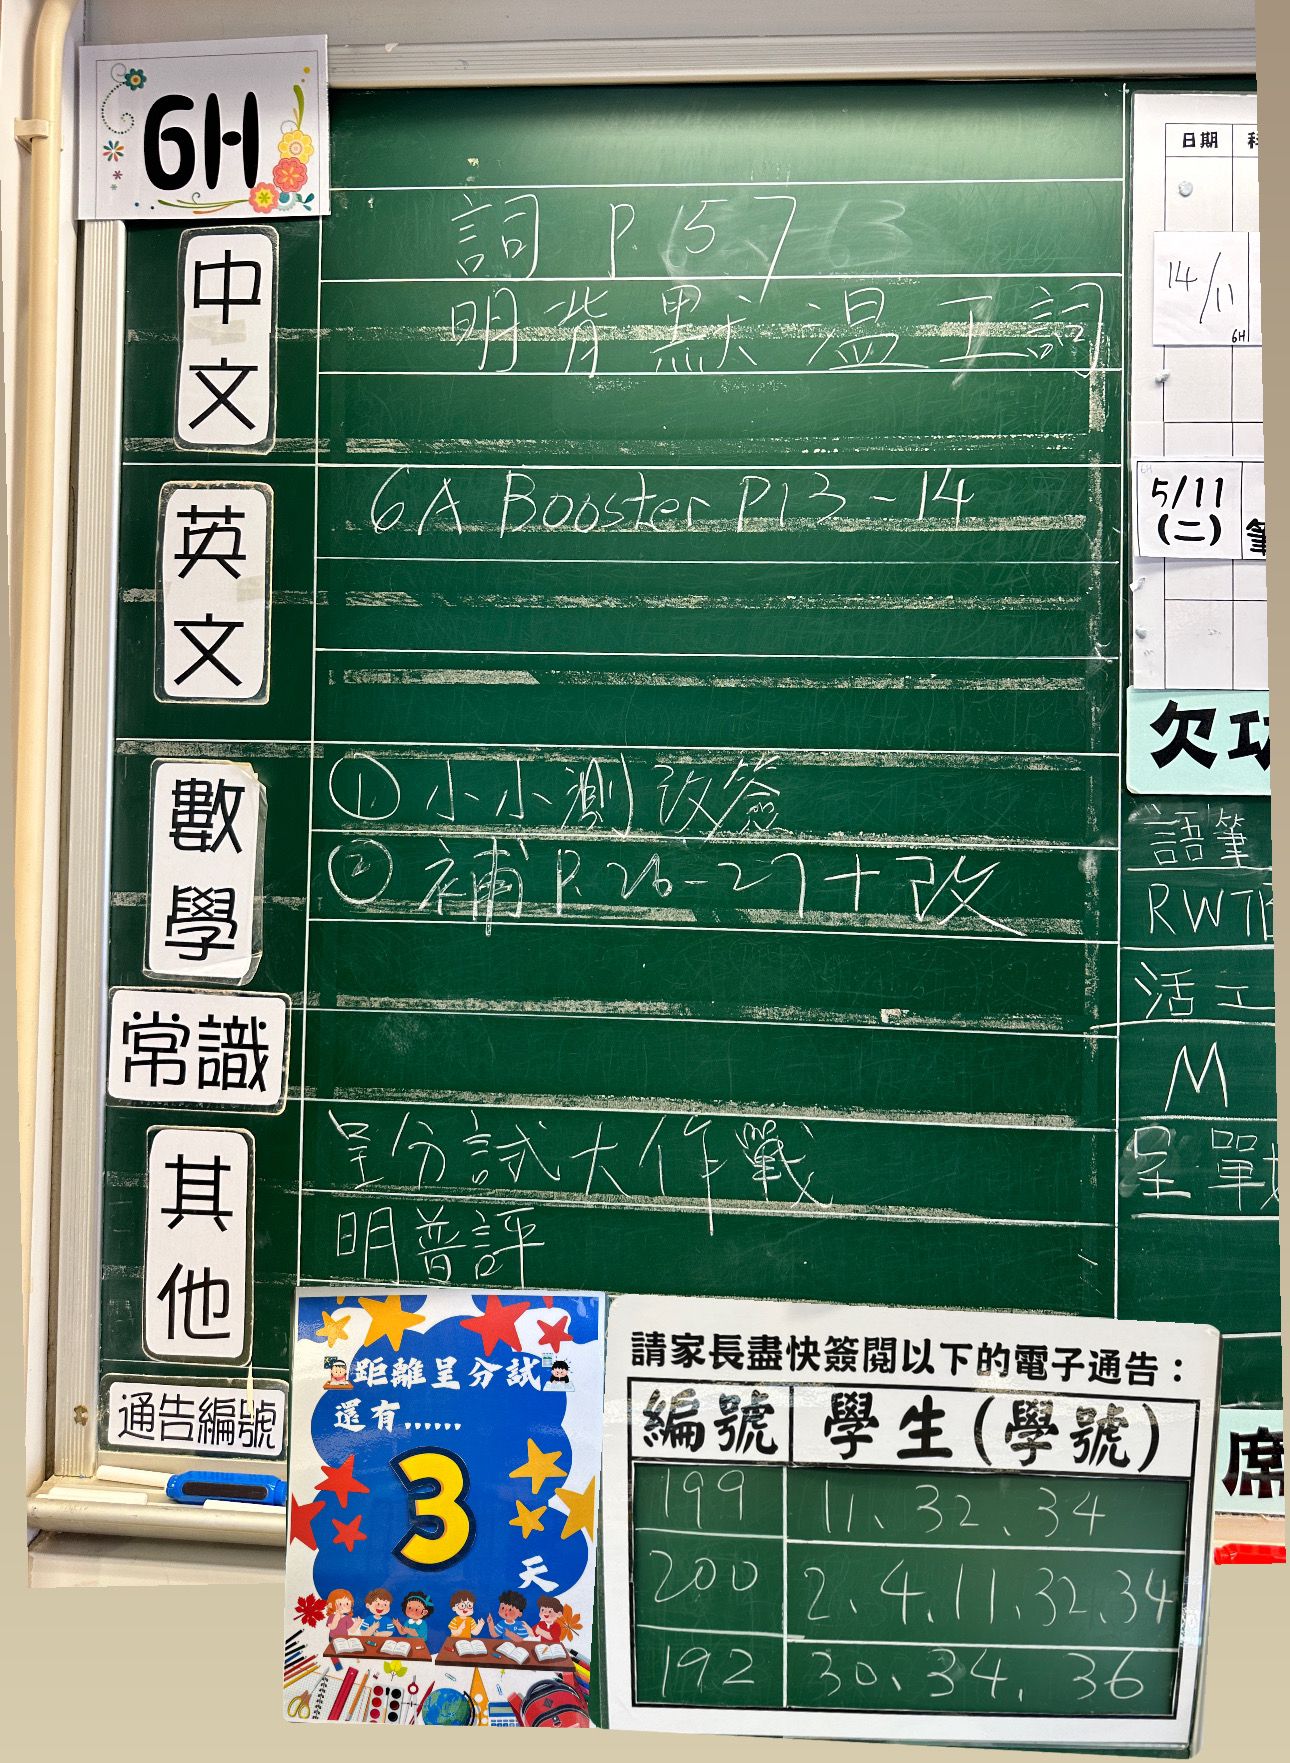 6H
中文
詞 P. 157
明背默溫工詞
英文
6A Booster P13-14
數學
① 小小測改簽
② 補 P.26-27+改
常識
其他
呈分試大作戰
明普評
通告編號
距離呈分試
還有......
3
天
請家長盡快簽閱以下的電子通告：
編號 學生(學號)
199 11、32、34
200 2、4、11、32、34
192 30、34、36
日期
14/11
6H
5/11
(二)
欠
語筆
RW
活工
M
呈戰
席